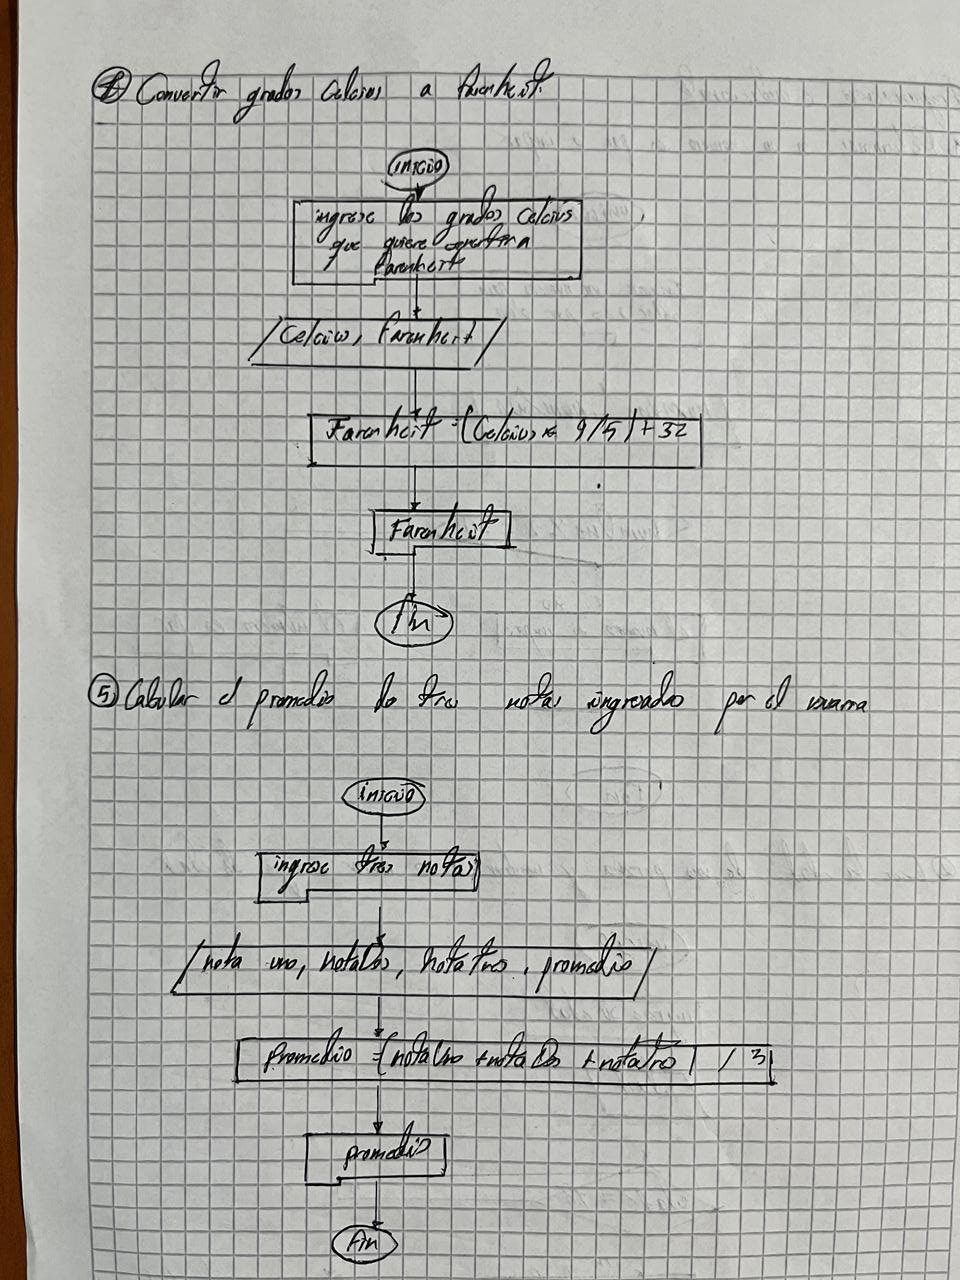 Convertir grados Celcius a farenheit.
inicio
ingrese los grados Celcius
que quiere convertir a
farenheit
Celcius, farenheit
Farenheit = (Celcius * 9/5) + 32
Farenheit
fin
5) Calcular el promedio de tres notas ingresadas por el
inicio
ingrese tres notas
nota uno, notaDos, notatres, promedio
Promedio = (notaUno + notaDos + notatres) / 3
promedio
fin